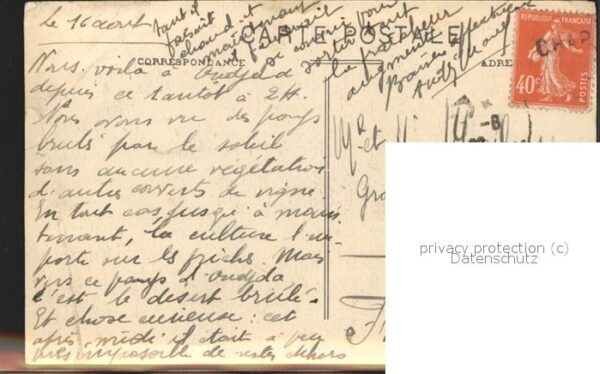 le 16 août
CARTE POSTALE
CORRESPONDANCE
ADRE
RÉPUBLIQUE FRANÇAISE
40c
POSTES
Nous voilà à Oudjda
depuis ce tantôt à 2H.
Nous avons vu des pays
brulés par le soleil
sans aucune végétation
d'autres couverts de vigne
En tout cas, jusqu'à main
tenant, la culture l'em-
porte sur les friches. Mais
vers ce pays d'oudjda
c'est le désert brulé.
Et chose curieuse : cet
après midi il était à peu
près impossible de rester dehors
tantôt il
faisait
chaud et
maintenant
il faut
se couvrir pour
sortir tant
la fraîcheur
augmente
Baisers affectueux
Mr et M
Gr
privacy protection (c)
Datenschutz